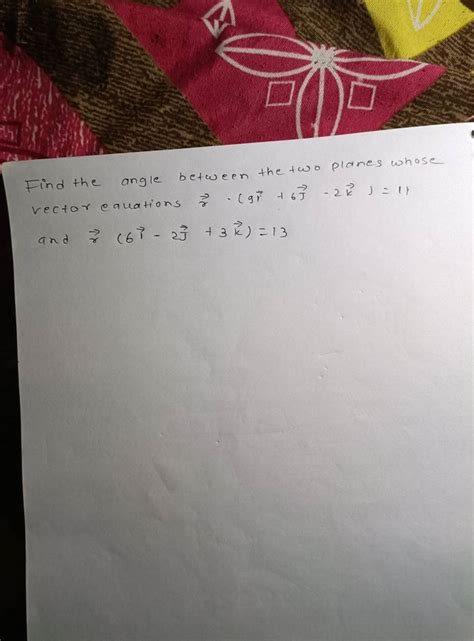 Find the angle between the two planes whose
vector equations r⃗ · (9i⃗ + 6j⃗ - 2k⃗) = 11
and r⃗ (6i⃗ - 2j⃗ + 3k⃗) = 13